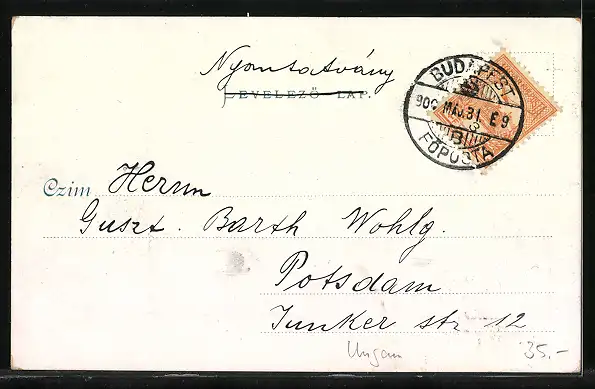 Nyomtatvány
LEVELEZŐ LAP.
BUDAPEST
900 MÁJ.31 E9
3
FŐPOSTA
Czim Herrn
Guszt. Barth Wohlg.
Potsdam
Junker str 12
Ungarn
35.-